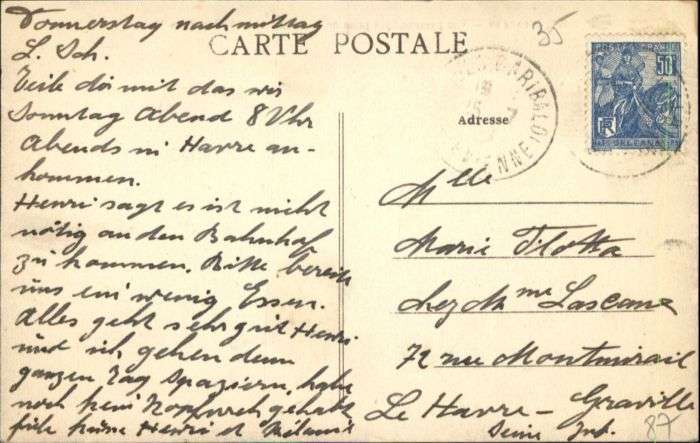 Donnerstag nachmittag
L. Sch.
Teile dir mit das wir
Sonntag Abend 8 Uhr
Abends in Havre an-
kommen.
Henri sagt es ist nicht
nötig an den Bahnhof
zu kommen. Bitte bereite
uns ein wenig Essen.
Alles geht sehr gut Henri
und ich gehen den
ganzen Tag spazieren, habe
noch kein Kopfweh gehabt
Henri et Mélanie
CARTE POSTALE
35
Adresse
GARIBALDI
POSTES FRANÇAISES
50c
RF
ORLEANS
Mlle
Marie Flotta
chez Mme Lascane
72 rue Montmirail
Le Havre - Graville
Seine Inf.
87